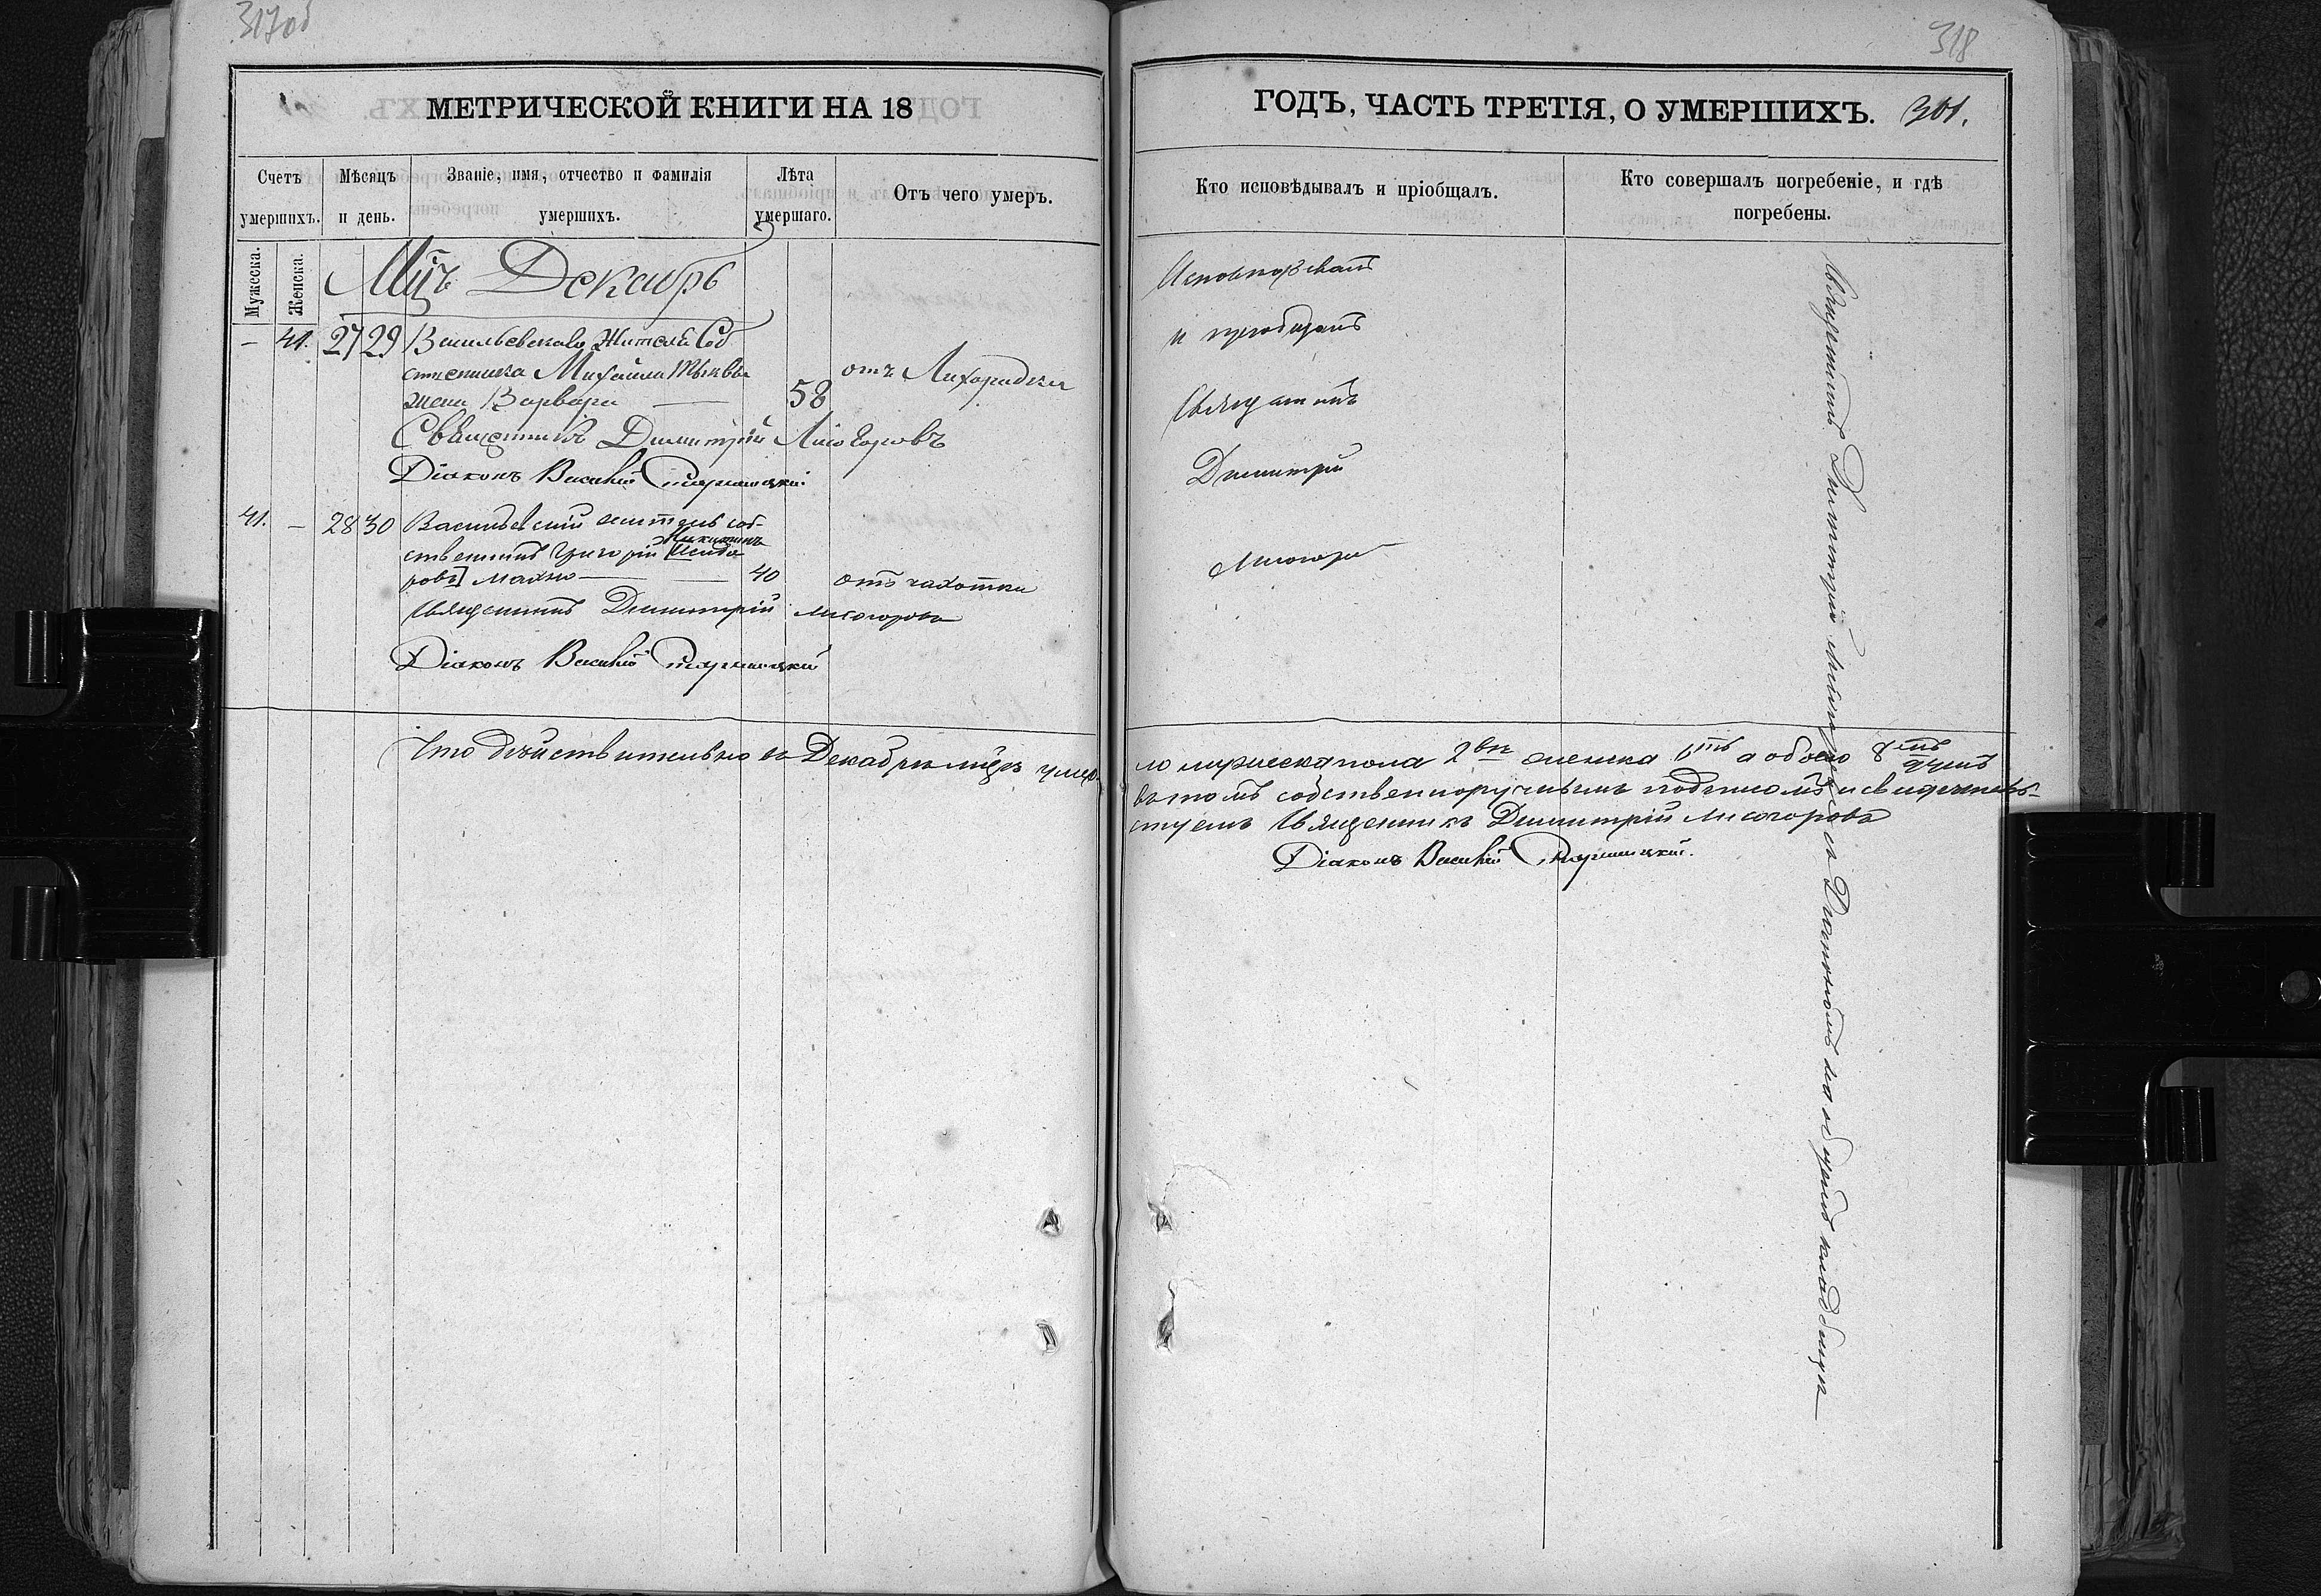 317об
МЕТРИЧЕСКОЙ КНИГИ НА 18
Счетъ умершихъ.
Мѣсяцъ и день.
Званіе, имя, отчество и фамилія умершихъ.
Лѣта умершаго.
Отъ чего умеръ.
Мужеска.
Женска.
Мцъ Декабрь
— 41. 27 29 Васильевскаго Жителя Соб
ственника Михаила Тыквы
жена Варвара — 58 отъ Лихорадки
Священникъ Димитрій Лисогоровъ
Діаконъ Василій
41. — 28 30 Васильевскій житель соб-
ственникъ Григорій [Исидо
Никитинъ
ровъ] Махно — — 40 отъ чахотки
Священникъ Димитрій Лисогоровъ
Діаконъ Василій
Что дѣйствительно въ Декабрѣ мцѣ умер-
318
ГОДЪ, ЧАСТЬ ТРЕТІЯ, О УМЕРШИХЪ. 301.
Кто исповѣдывалъ и пріобщалъ.
Кто совершалъ погребеніе, и гдѣ погребены.
Исповѣдывалъ
и пріобщалъ
Священникъ
Димитрій
Лисогоровъ
Священникъ Димитрій Лисогоровъ съ Діакономъ на общемъ кладбищѣ
ло мужеска пола 2 женска 6ть а обоего 8мь душъ
въ томъ собственноручнымъ подписомъ и свидѣтель-
ствуемъ Священникъ Димитрій Лисогоровъ
Діаконъ Василій